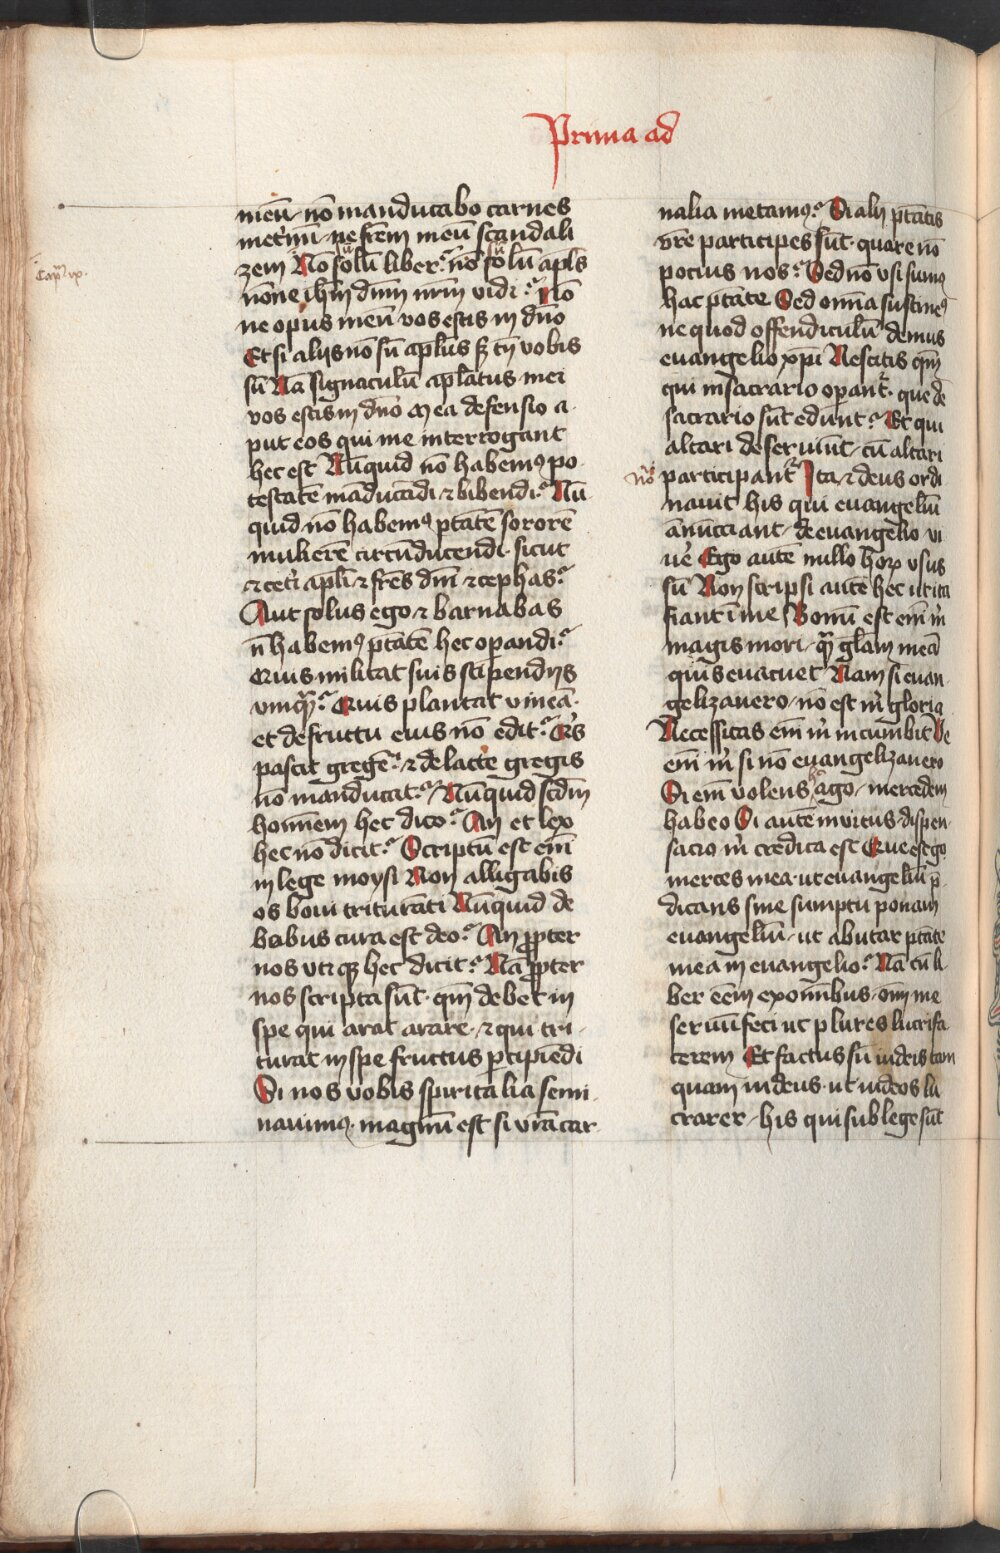 Prima ad
meū. nō manducabo carnes
met̾nū. ne frēm meū scandali
zem Nō sū solū liber? nō sū solū apl̄s
Cap̄. ix.
nōne ih̄m dn̄m nr̄m vidi? Nō
ne opus meū vos estis in dn̄o
Et si aliis nō sū apl̄us sꝫ tn̄ vobis
sū Nā signaculū apl̄atus mei
vos estis in dn̄o Mea defensio a
put eos qui me interrogant
hec est Nūquid nō habemꝰ po
testatē māducādi ⁊ bibendi? Nū
quid nō habemꝰ ptātē sororē
mulierē circūducendi. sicut
⁊ ceti apl̄i ⁊ frēs dn̄i ⁊ cephas?
Aut solus ego ⁊ barnabas
n̄ habemꝰ ptātē hec opandi?
Quis militat suis stipendiis
vmqᷓ? Quis plantat vineā.
et de fructu eius nō edit? Qͥs
pascit gregē? ⁊ de lacte gregis
nō manducat? Nūquid scd̄m
hominem hec dico? An et lex
hec nō dicit? Scriptū est em̄
in lege moysi Non alligabis
os boui triturāti Nūquid de
bobus cura est deo? An ꝓpter
nos vtiqꝫ hec dicit? Nā ꝓpter
nos scripta sūt. qm̄ debet in
spe qui arat arare. ⁊ qui tri
turat in spe fructus ꝑcipiēdi
Si nos vobis spiritalia semi
nauimꝰ. magnū est si vr̄a car
nalia metamꝰ? Si alii ptātis
vr̄e participes sūt. quare nō
pocius nos? Sed nō vsi sumꝰ
hac ptāte Sed omīa sustinemꝰ
ne quod offendiculū demus
euangelio xp̄i Nescitis qm̄
qui in sacrario opant̾. que de
sacrario sūt edunt? Et qui
altari deseruiūt. cū altari
participant̾ Ita ⁊ deus ordi
nauit his qui euangeliū
ānūcciant. de euangelio vi
ue̾ Ego autē nullo hoꝝ vsus
sū Non scripsi autē hec ut ita
fiant ī me Bonū est em̄ m̍
magis mori. qᷓ gl̄am meā
quis euacuet Nam si euan
gelizauero. nō est m̍ gloria
Necessitas em̄ m̍ incumbit Ve
em̄ m̍ si nō euangelizauero
Si em̄ volens hͦ ago. mercedem
habeo Si autē inuitus. dispen
sacio m̍ credita est Que est gͦ
merces mea. ut euangeliū p̄
dicans sine sumptu ponam
euangeliū. ut abutar ptāte
mea in euangelio? Nā cū li
ber eēm ex omībus. oīm me
seruū feci ut plures lucrifa
cerem Et factus sū iudeis tam
quam iudeus. ut iudeos lu
crarer. his qui sub lege sūt